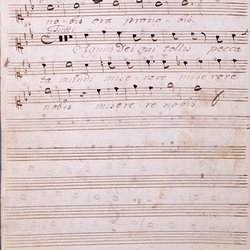 no-bis ora pro no-bis.
Tutti
Agnus Dei qui tollis pecca
ta mundi mise-rere miserere
nobis misere re nobis.